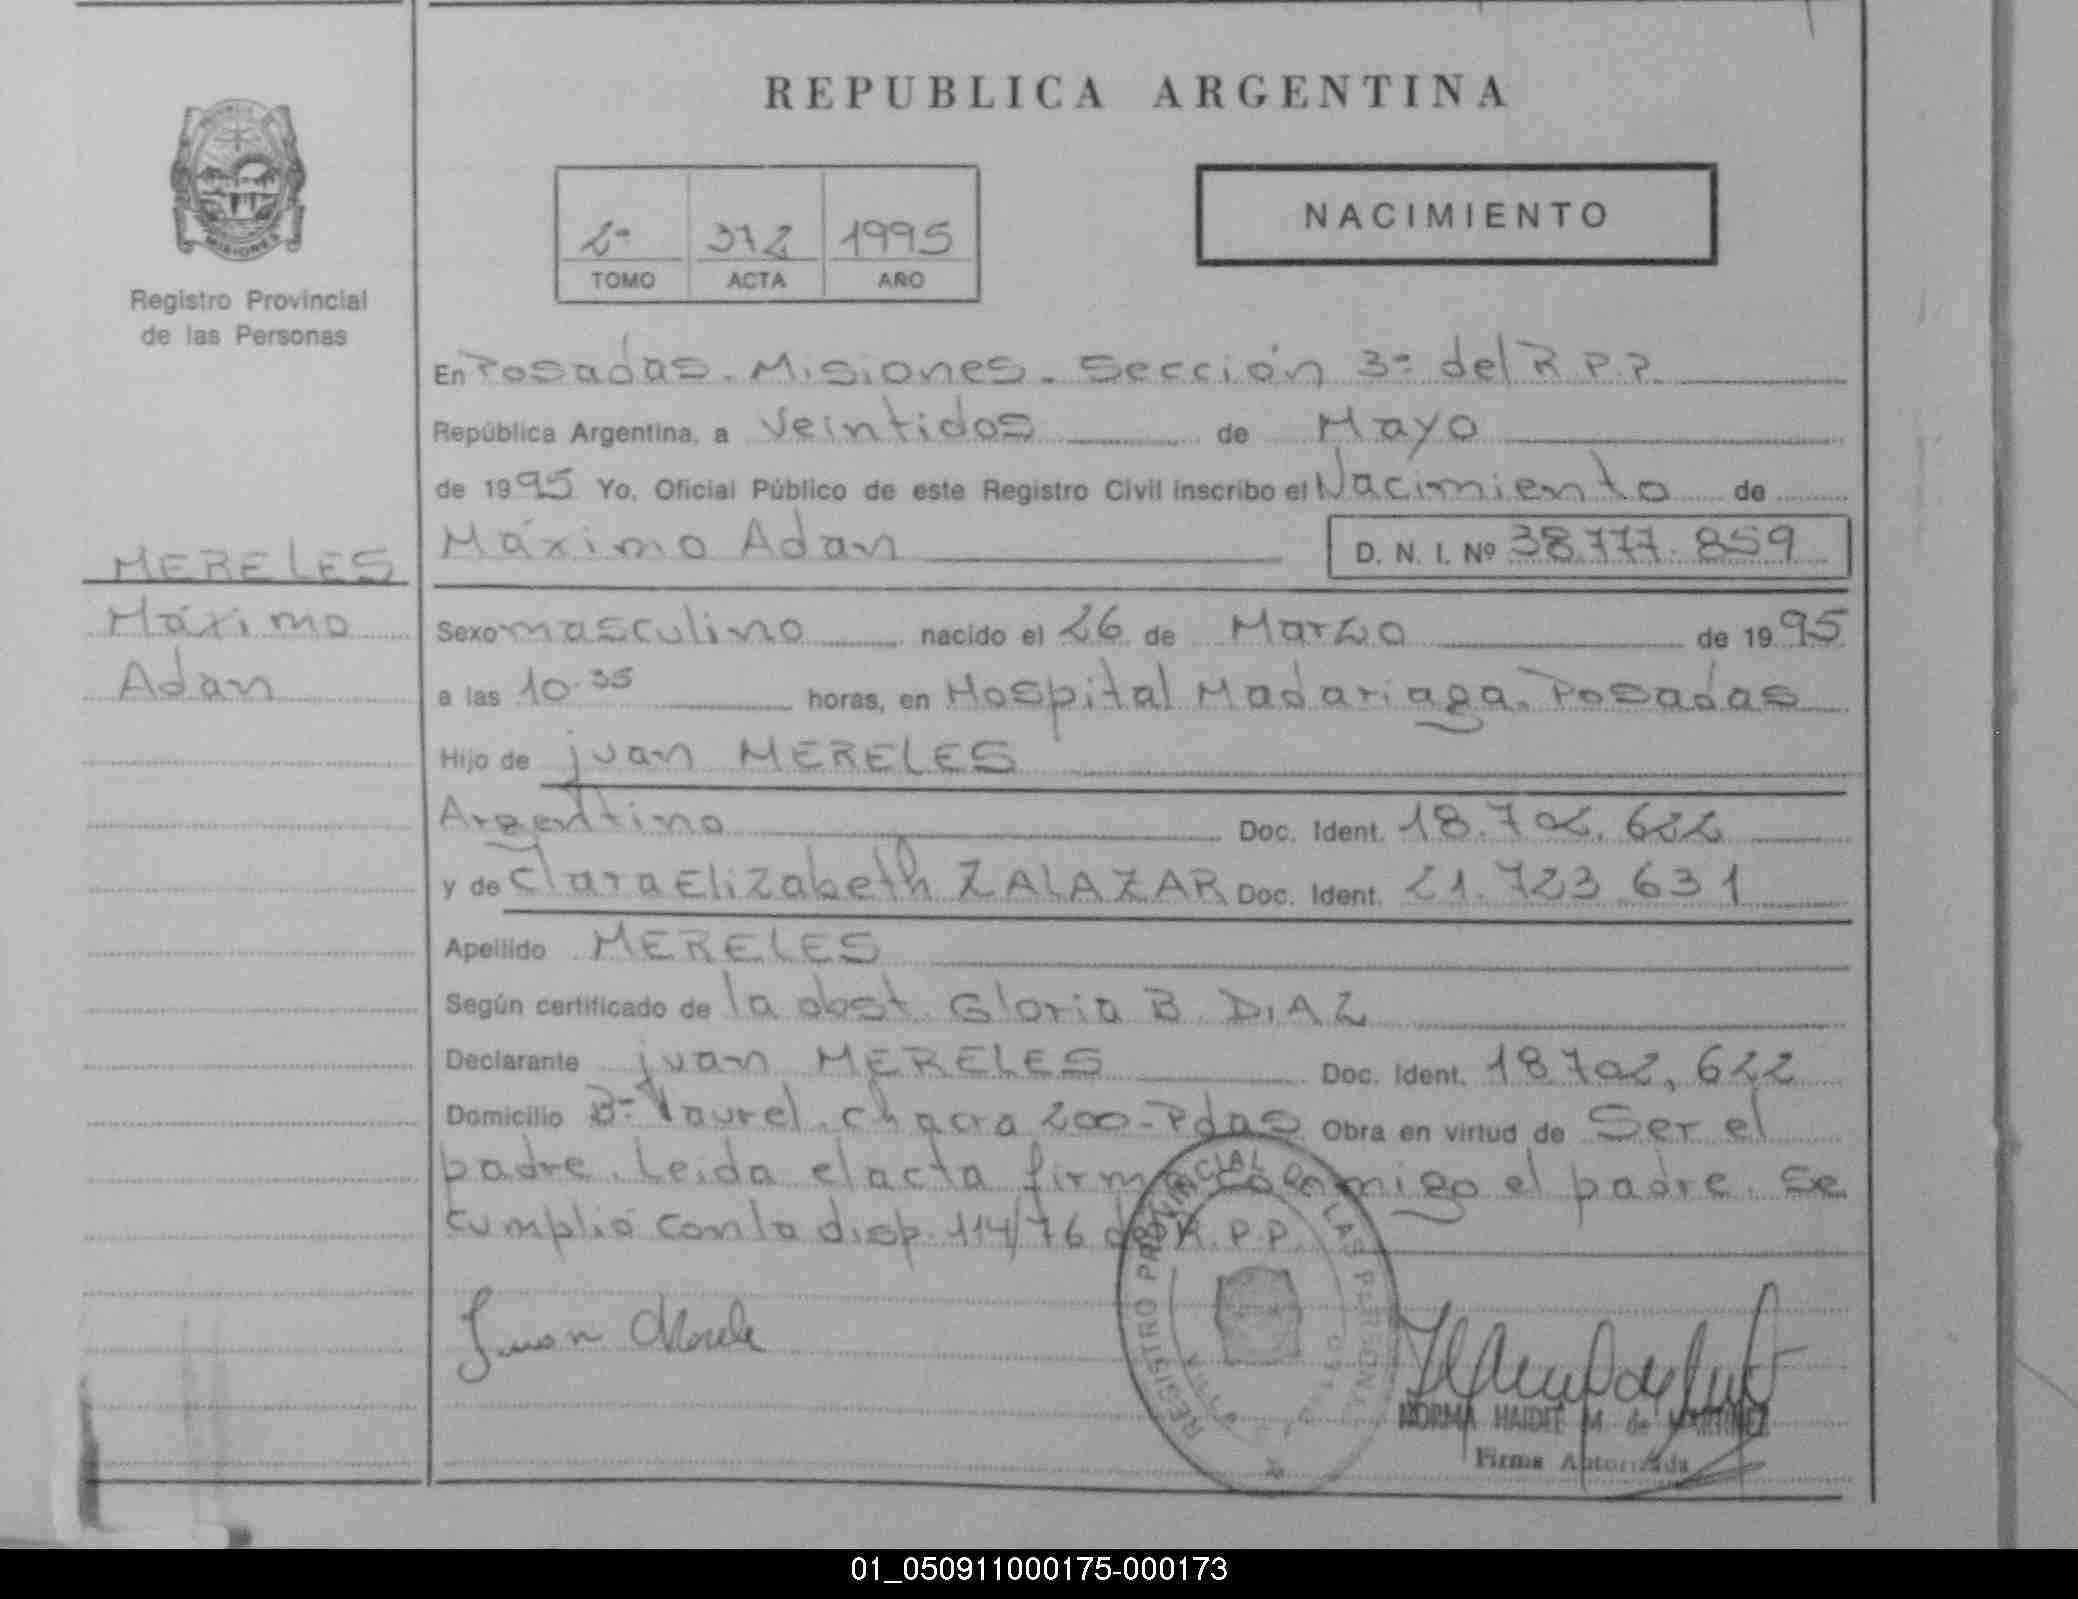 REPUBLICA ARGENTINA
MISIONES
Registro Provincial
de las Personas
2º 372 1995
TOMO ACTA AÑO
NACIMIENTO
En Posadas. Misiones. Sección 3º del R.P.P.
República Argentina, a Veintidos de Mayo
de 1995 Yo, Oficial Público de este Registro Civil inscribo el Nacimiento de
Máximo Adan D. N. I. Nº 38.777.859
MERELES
Máximo
Adan
Sexo masculino nacido el 26 de Marzo de 1995
a las 10.35 horas, en Hospital Madariaga. Posadas
Hijo de juan MERELES
Argentino Doc. Ident. 18.702.622
y de Clara Elizabeth ZALAZAR Doc. Ident. 21.723.631
Apellido MERELES
Según certificado de la obst. Gloria B. DIAZ
Declarante juan MERELES Doc. Ident. 18.702.622
Domicilio Bº Laurel. chacra 200-Pdas Obra en virtud de Ser el
padre. Leida el acta firma conmigo el padre. Se
cumplió con la disp. 114/76 del R.P.P.
REGISTRO PROVINCIAL DE LAS PERSONAS
Juan
NORMA HAIDEE M. de MARTINEZ
Firma Autorizada
01_050911000175-000173